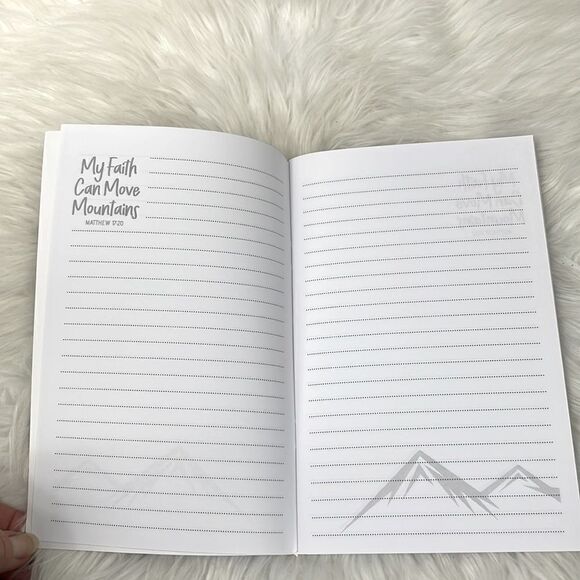 My Faith
Can Move
Mountains
MATTHEW 17:20